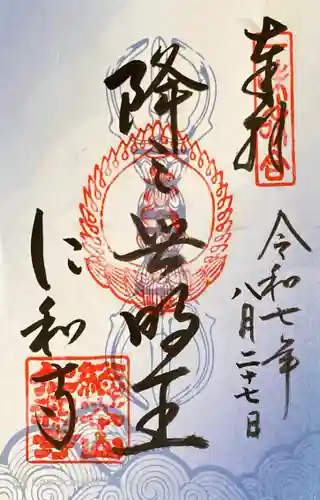 奉拝
令和七年
八月二十七日
降三世明王
仁和寺